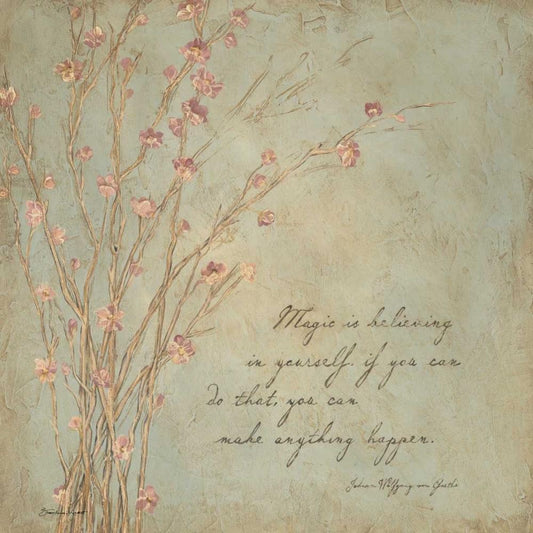 Magic is believing
in yourself. if you can
do that, you can
make anything happen.
Johann Wolfgang von Goethe